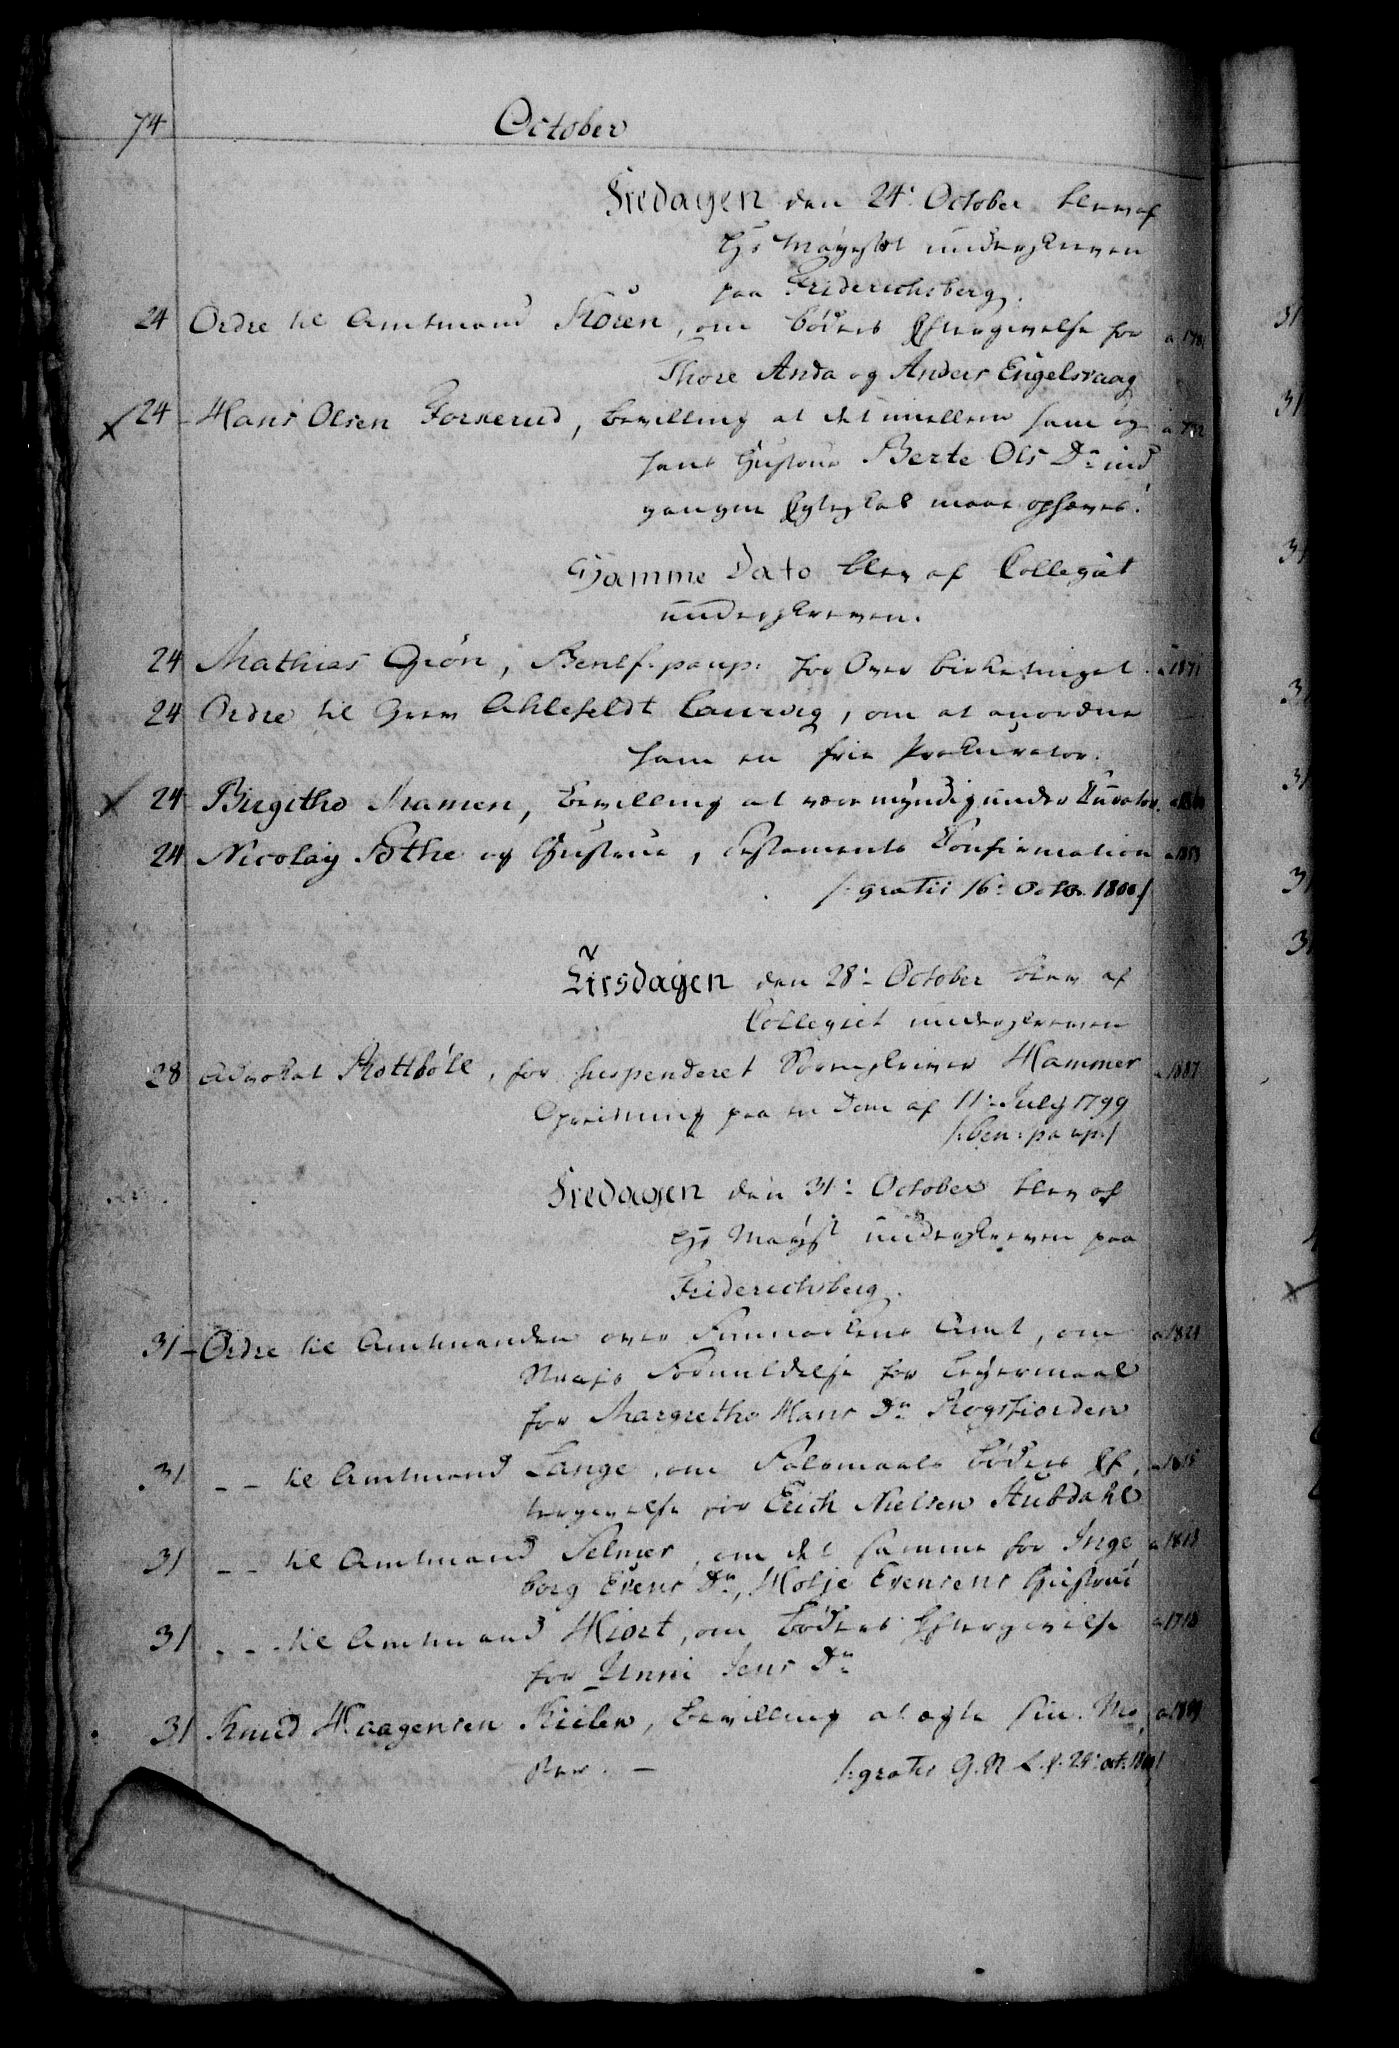 74
October
Fredagen den 24: October blev af
Hs Mayestet underskreven
paa Friderichsberg.
24 Ordre til Amtmand Koren, om Bøders Eftergivelse for
Thore Anda og Anders Engelsvaag
24 Hans Olsen Forserud, Bevilling at det imellem ham og
hans Hustrue Berte Ols Dr ind
gangen Egteskab maae ophæves.
Samme Dato blev af Collegiet
underskreven.
24 Mathias Grön, Benef: paup: for Over Birketinget a 1871
24 Ordre til Grev Ahlefeldt Laurvig, om at anordne
ham en frie Prokurator.
24 Birgithe Mamen, Bevilling at være myndig under Kurator.
24 Nicolaÿ Sothe og Hustrue, Testaments Confirmation a 1859
/: gratis 16: Octbr. 1800 /
Tirsdagen den 28: October blev af
Collegiet underskreven
28 Advokat Rottbøll, for suspenderet Sorenskriver Hammer a 1887
Opreisning paa en Dom af 11: Julÿ 1799
/: ben: paup: /
Fredagen den 31: October blev af
Hs Mayst underskreven paa
Friderichsberg.
31 – Ordre til Amtmanden over Finmarkens Amt, om a 1821
Straffs Formildelse for Leyermaal
for Margrethe Hans Dr Rogsfiorden
31 – – til Amtmand Lange, om Faldsmaals Bøders Ef,
tergivelse for Erich Nielsen Aubdahl
31 – – til Amtmand Selmer, om det samme for Inge
borg Evens Dr, Holje Evensens Hustrue
31 – – til Amtmand Hiort, om Bøders Eftergivelse
for Unni Jens Dr
31 Knud Haagensen Kiilen, Bevilling at ægte sin Mo,
ster. – /: gratis G. R. L. f. 24: oct: 1800 /